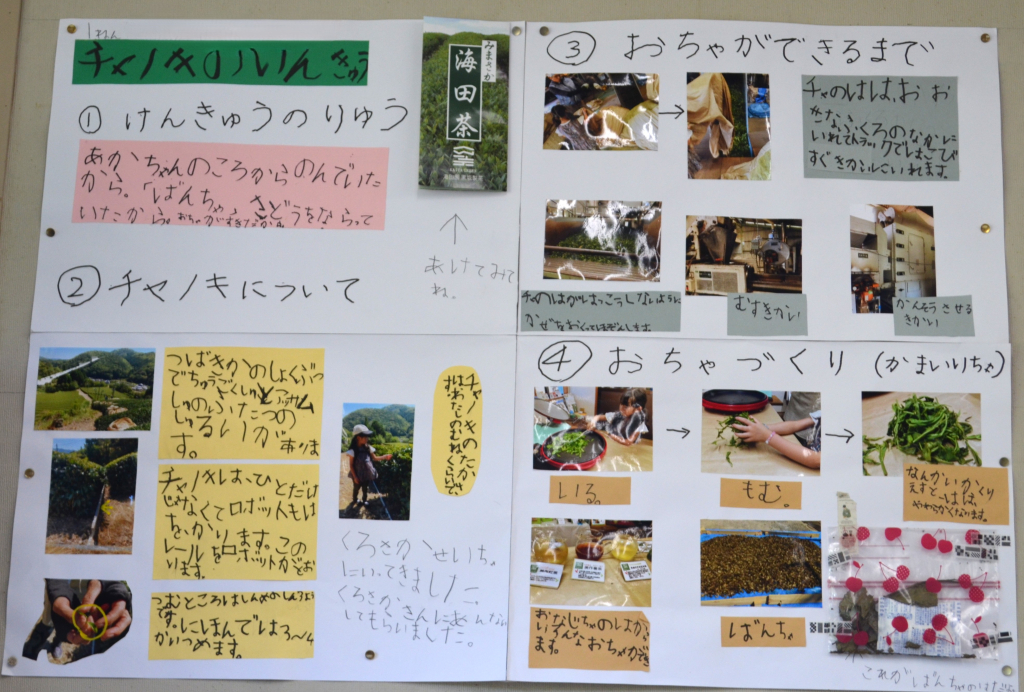 1ねん
チャノキのいんきゅう
① けんきゅうのりゆう
あかちゃんのころからのんでいた
から。「ばんちゃ」 さどうをならって
いたから。おちゃがすきだから。
みまさか
海田茶
↑
あけてみて
ね。
② チャノキについて
つばきかのしょくぶつ
でちゅうごくしゅとアッサム
しゅのふたつの
しゅるいが
あります。
チャノキは、ひとだけ
じゃなくてロボットもは
をかります。この
レールをロボットがとお
います。
つむところはしんめのしたろ
です。
にほんでは3~4
かいつめます。
チャノキのたかさ
はわたしのむねくらいで
す。
くろさかせいちゃ
にいってきました。
くろさかさんにあんない
してもらいました。
③ おちゃができるまで
→
チャのはは、おお
きなふくろのなかに
いれてトラックではこび
すぐきかいにいれます。
チャのはがはっこうしないように
かぜをおくってほぞんします。
むすきかい
かんそうさせる
きかい
④ おちゃづくり (かまいりちゃ)
→
→
いる。
もむ。
なんかいかくり
かえすと、はは
やわらかくなります。
おなじちゃのはから
いろんなおちゃができ
ます。
ばんちゃ。
これがばんちゃのはだ